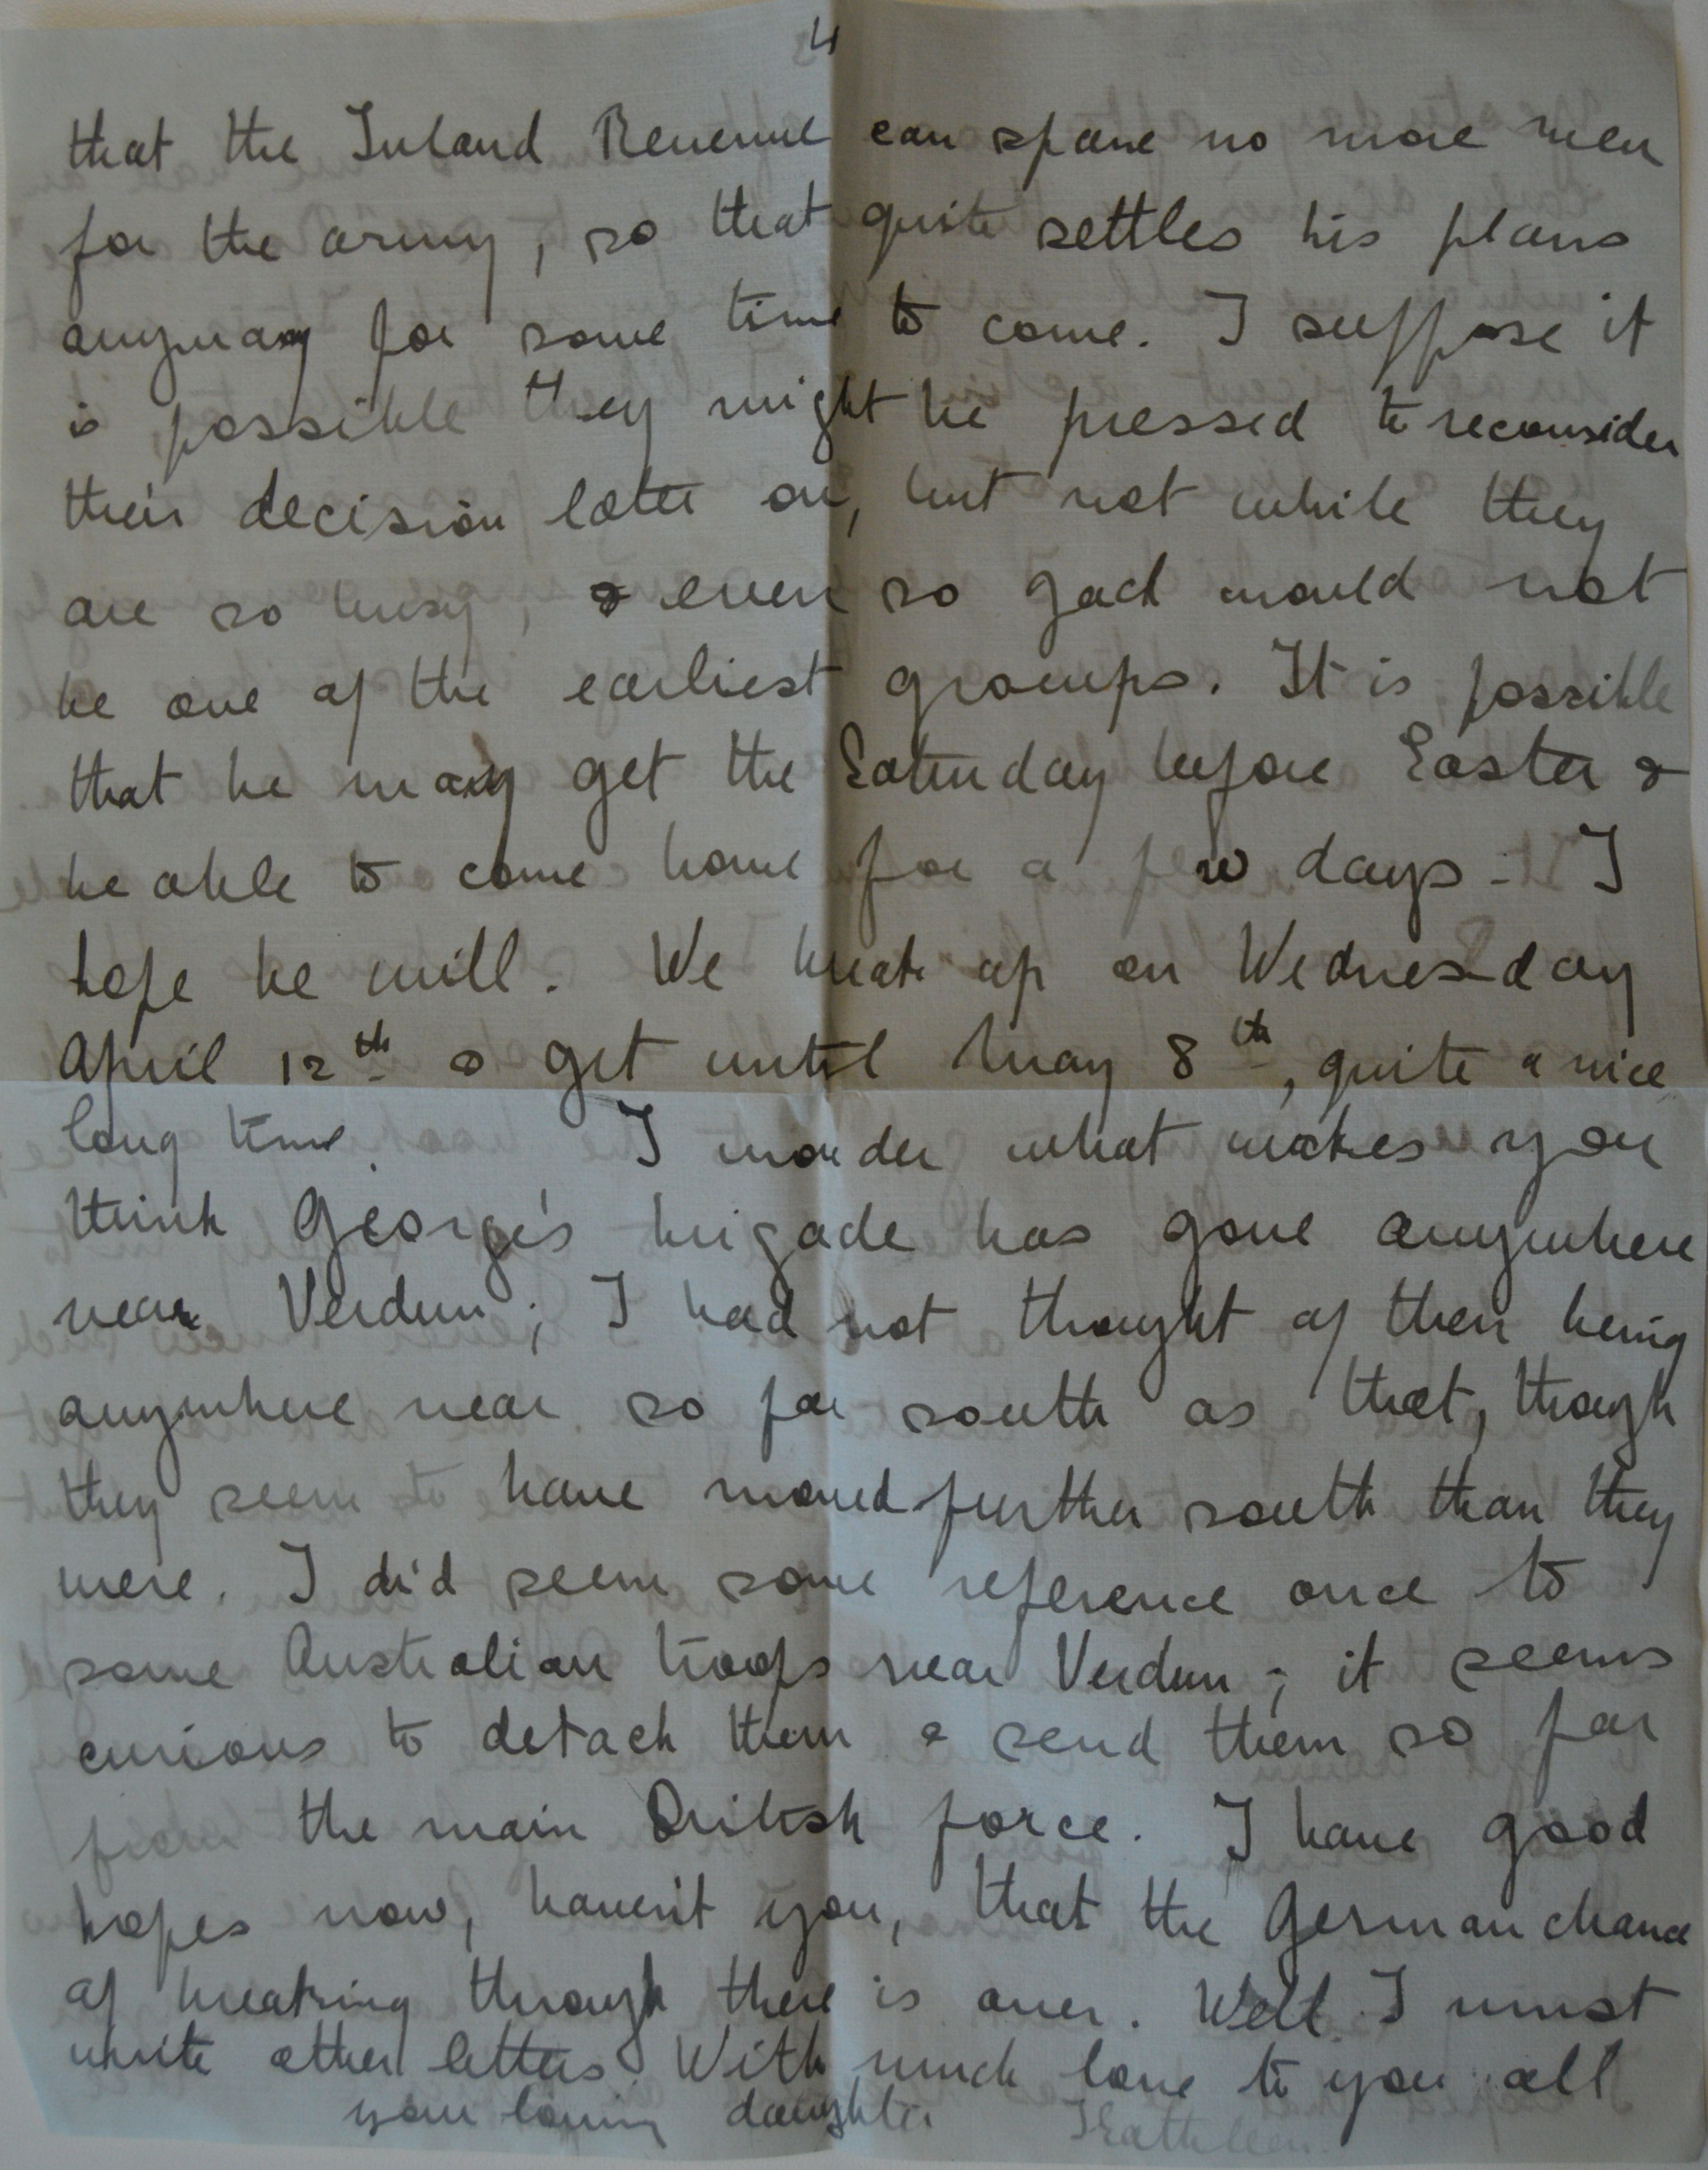 4
that the Inland Revenue can spare no more men
for the army, so that quite settles his plans
anyway for some time to come. I suppose it
is possible they might be pressed to reconsider
their decision later on, but not while they
are so busy, & even so Jack would not
be one of the earliest groups. It is possible
that he may get the Saturday before Easter &
be able to come home for a few days - I
hope he will. We break up on Wednesday
April 12th & get until May 8th, quite a nice
long time. I wonder what makes you
think George's brigade has gone anywhere
near Verdun; I had not thought of their being
anywhere near so far south as that, though
they seem to have moved further south than they
were. I did seem some reference once to
some Australian troops near Verdun; it seems
curious to detach them & send them so far
from the main British force. I have good
hopes now, haven't you, that the German chance
of breaking through there is over. Well I must
write other letters. With much love to you all
your loving daughter Kathleen.